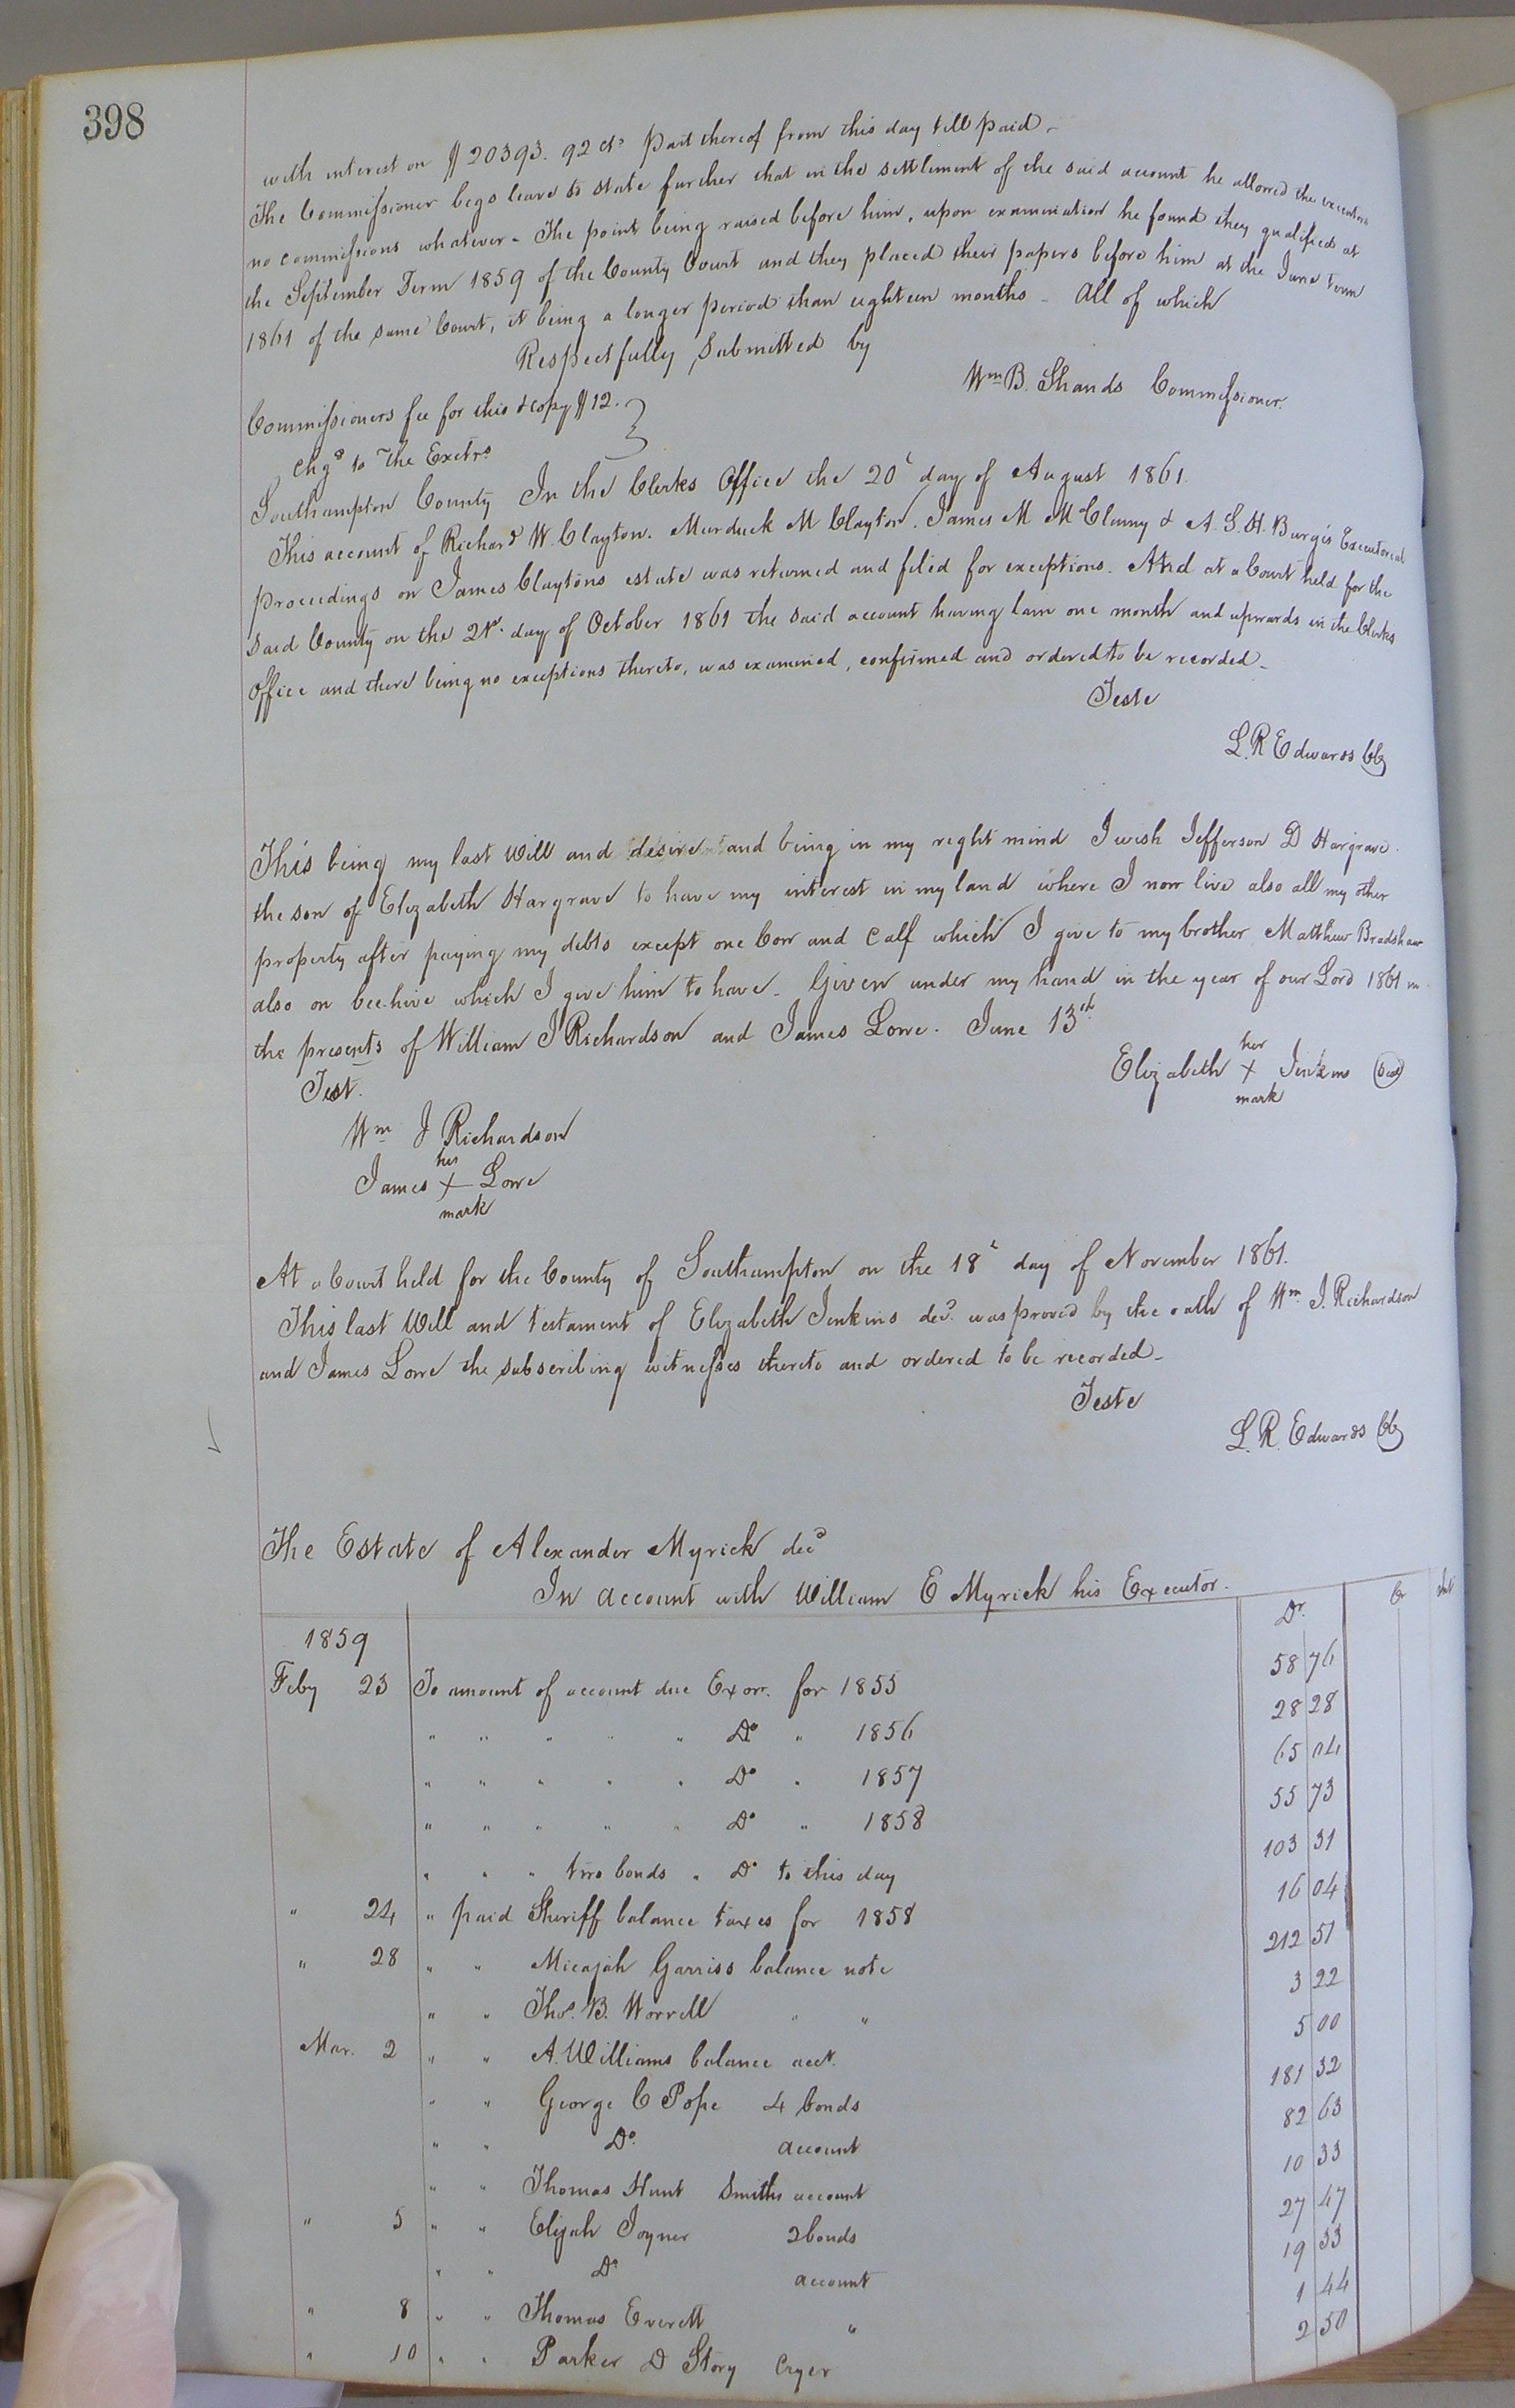 398
with interest on $20393. 92 cts part thereof from this day till paid -
The Commissioner begs leave to state further that in the settlement of the said account he allowed the executors
no commissions whatever - The point being raised before him, upon examination he found they qualified at
the September Term 1859 of the County Court and they placed their papers before him at the June term
1861 of the same Court, it being a longer period than eighteen months - All of which
Respectfully Submitted by
Wm B. Shands Commissioner.
Commissioners fee for this & copy $12. }
Chgd to The Exctrs
Southampton County In the Clerks Office the 20t day of August 1861.
This account of Richard W. Clayton. Murduck M Clayton. James M McClenny & A. S. H. Burgis Executorial
proceedings on James Claytons estate was returned and filed for exceptions. And at a Court held for the
said County on the 21st. day of October 1861 the said account having lain one month and upwards in the Clerks
Office and there being no exceptions thereto, was examined, confirmed and ordered to be recorded -
Teste
L. R Edwards Clk
This being my last Will and desire and being in my right mind I wish Jefferson D Hargrave.
the son of Elizabeth Hargrave to have my interest in my land where I now live also all my other
property after paying my debts except one Cow and Calf which I give to my brother Matthew Bradshaw
also on bee-hive which I give him to have. Given under my hand in the year of our Lord 1861 in
the presents of William J Richardson and James Lowe. June 13th
Test.
Elizabeth her X mark Jenkins (Seal)
Wm J Richardson
James his X mark Lowe
At a Court held for the County of Southampton on the 18t day of November 1861.
This last Will and testament of Elizabeth Jenkins decd. was proved by the oath of Wm J. Richardson
and James Lowe the subscribing witnesses thereto and ordered to be recorded -
Teste
L. R. Edwards Clk
The Estate of Alexander Myrick decd
In account with William E Myrick his Executor.
Dr. Cr
1859
Feby 23 To amount of account due Exor. for 1855 58 76
" " " " " Do " 1856 28 28
" " " " " Do " 1857 65 04
" " " " " Do " 1858 55 73
" " " two bonds " Do to this day 103 31
" 24 " paid Sheriff balance taxes for 1858 16 04
" 28 " " Micajah Garriss balance note 212 51
" " Thos. B. Worrell " " 3 22
Mar. 2 " " A. Williams balance acct. 5 00
" " George C Pope 4 bonds 181 32
" " Do. account 82 63
" " Thomas Hunt Smiths account 10 33
" 5 " " Elijah Joyner 2 bonds 27 47
" " Do account 19 33
" 8 " " Thomas Everett " 1 44
" 10 " " Parker D Story Cryer 2 50